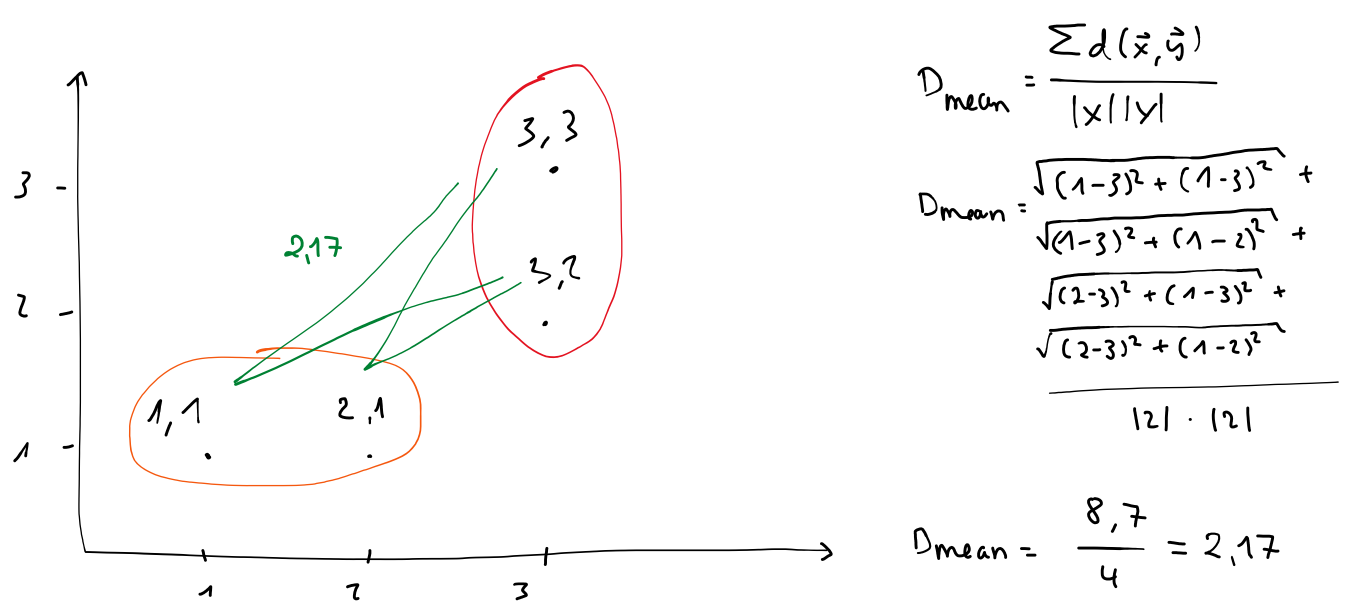 3
2
1
1
2
3
3,3
3,2
2,17
1,1
2,1
D_mean = Σd(x⃗,y⃗) / |x||y|
D_mean = √(1-3)² + (1-3)² +
√(1-3)² + (1-2)² +
√(2-3)² + (1-3)² +
√(2-3)² + (1-2)²
|2| · |2|
D_mean = 8,7 / 4 = 2,17